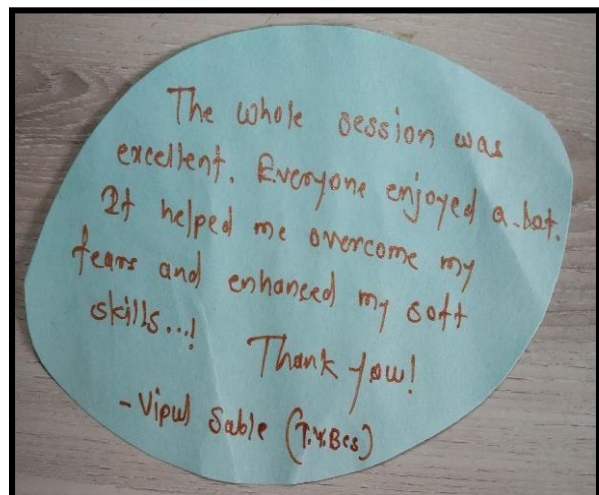 The whole session was
excellent. Everyone enjoyed a lot.
It helped me overcome my
fears and enhanced my soft
skills...!
Thank you!
- Vipul Sable (T.Y.Bcs)